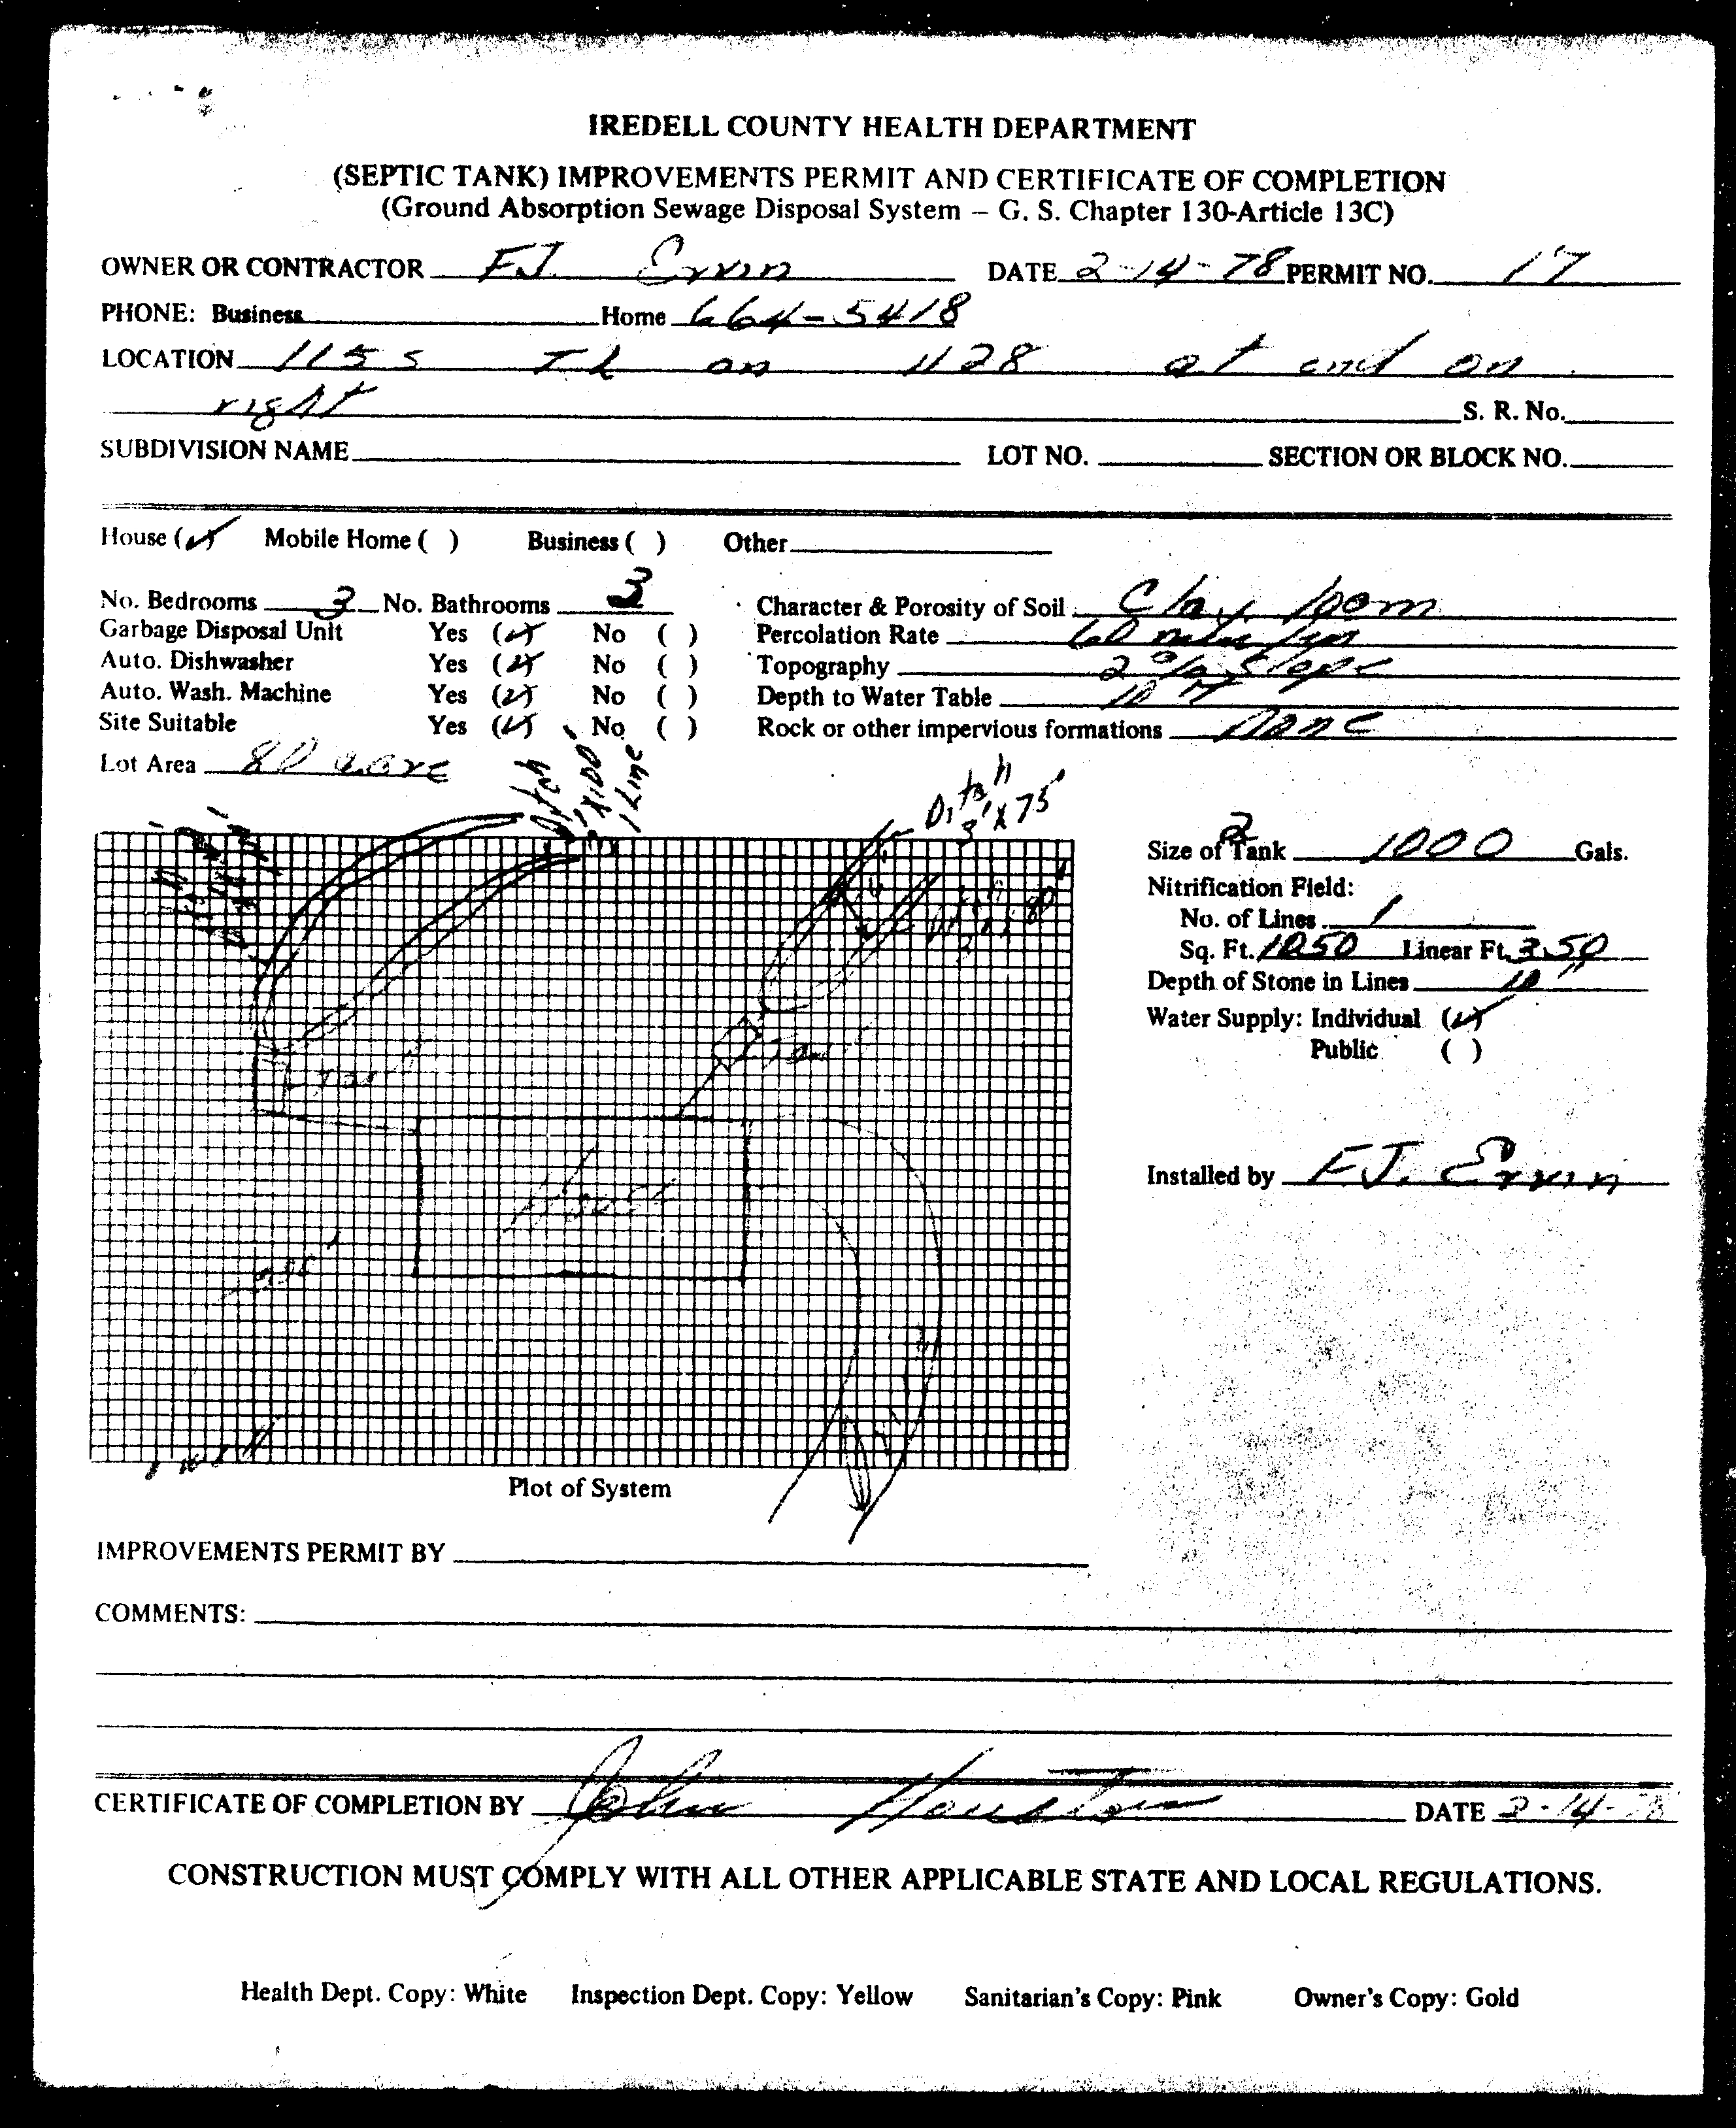 IREDELL COUNTY HEALTH DEPARTMENT
(SEPTIC TANK) IMPROVEMENTS PERMIT AND CERTIFICATE OF COMPLETION
(Ground Absorption Sewage Disposal System – G. S. Chapter 130-Article 13C)
OWNER OR CONTRACTOR F.J. Ervin DATE 2-14-78 PERMIT NO. 17
PHONE: Business Home 664-5418
LOCATION 115 S TL on 1128 at end on
right S. R. No.
SUBDIVISION NAME LOT NO. SECTION OR BLOCK NO.
House (✓) Mobile Home ( ) Business ( ) Other
No. Bedrooms 3 No. Bathrooms 3 Character & Porosity of Soil Clay loam
Garbage Disposal Unit Yes (✓) No ( ) Percolation Rate 60
Auto. Dishwasher Yes (✓) No ( ) Topography 2% slope
Auto. Wash. Machine Yes (✓) No ( ) Depth to Water Table 10
Site Suitable Yes (✓) No ( ) Rock or other impervious formations None
Lot Area 80 acre
Ditch 3' X 100 1 Line
Ditch 3' X 75'
80'
Tank
Tank
House
Size of Tank 2 1000 Gals.
Nitrification Field:
No. of Lines 1
Sq. Ft. 1050 Linear Ft. 350
Depth of Stone in Lines 10"
Water Supply: Individual (✓)
Public ( )
Installed by F.J. Ervin
Plot of System
IMPROVEMENTS PERMIT BY
COMMENTS:
CERTIFICATE OF COMPLETION BY John Houston DATE 2-14-78
CONSTRUCTION MUST COMPLY WITH ALL OTHER APPLICABLE STATE AND LOCAL REGULATIONS.
Health Dept. Copy: White Inspection Dept. Copy: Yellow Sanitarian's Copy: Pink Owner's Copy: Gold